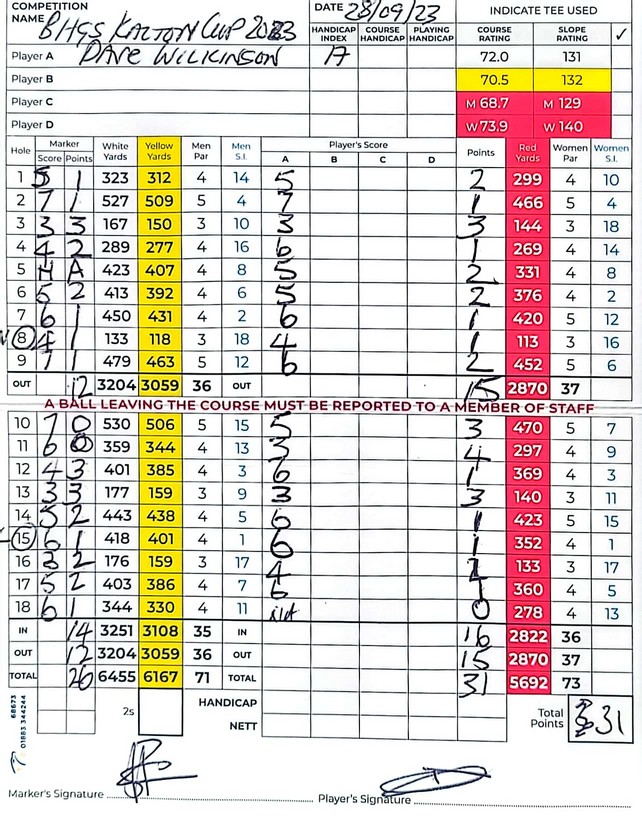 COMPETITION NAME BHGS KALTON CUP 2023 DATE 28/09/23 INDICATE TEE USED
HANDICAP INDEX COURSE HANDICAP PLAYING HANDICAP COURSE RATING SLOPE RATING ✓
Player A DAVE WILKINSON 17 72.0 131
Player B 70.5 132
Player C M 68.7 M 129
Player D W 73.9 W 140
Hole Marker Score Points White Yards Yellow Yards Men Par Men S.I. Player's Score A B C D Points Red Yards Women Par Women S.I.
1 5 1 323 312 4 14 5 2 299 4 10
2 7 1 527 509 5 4 7 1 466 5 4
3 3 3 167 150 3 10 3 3 144 3 18
4 4 2 289 277 4 16 6 1 269 4 14
5 423 407 4 8 5 2 331 4 8
6 5 2 413 392 4 6 5 2 376 4 2
7 6 1 450 431 4 2 6 1 420 5 12
8 4 1 133 118 3 18 4 1 113 3 16
9 7 1 479 463 5 12 6 2 452 5 6
OUT 12 3204 3059 36 OUT 15 2870 37
A BALL LEAVING THE COURSE MUST BE REPORTED TO A MEMBER OF STAFF
10 7 0 530 506 5 15 5 3 470 5 7
11 6 0 359 344 4 13 3 4 297 4 9
12 4 3 401 385 4 3 6 1 369 4 3
13 3 3 177 159 3 9 3 3 140 3 11
14 5 2 443 438 4 5 6 1 423 5 15
15 6 1 418 401 4 1 6 1 352 4 1
16 3 2 176 159 3 17 4 133 3 17
17 5 2 403 386 4 7 360 4 5
18 6 1 344 330 4 11 0 278 4 13
IN 14 3251 3108 35 IN 16 2822 36
OUT 12 3204 3059 36 OUT 15 2870 37
TOTAL 26 6455 6167 71 TOTAL 31 5692 73
2s HANDICAP
NETT
Total Points 31
68673
01883 344244
Marker's Signature Player's Signature